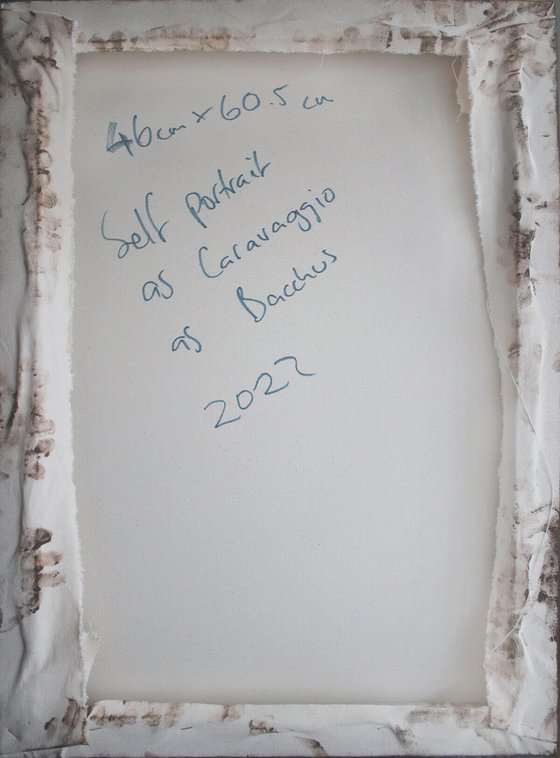 46cm x 60.5 cm
Self portrait
as Caravaggio
as Bacchus
2022